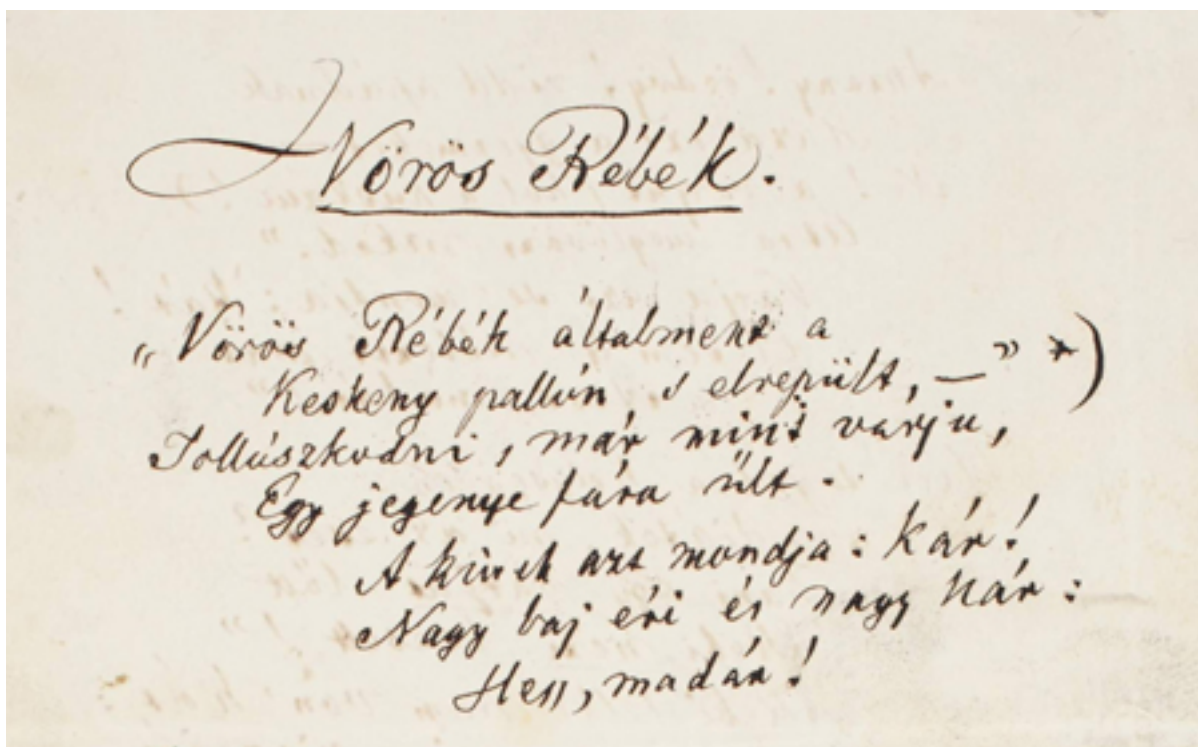 Vörös Rébék.
„Vörös Rébék általment a
Keskeny pallón s elrepűlt, —” *)
Tollászkodni, már mint varju,
Egy jegenye fára űlt.
A kinek azt mondja: kár!
Nagy baj éri és nagy kár:
Hess, madár!